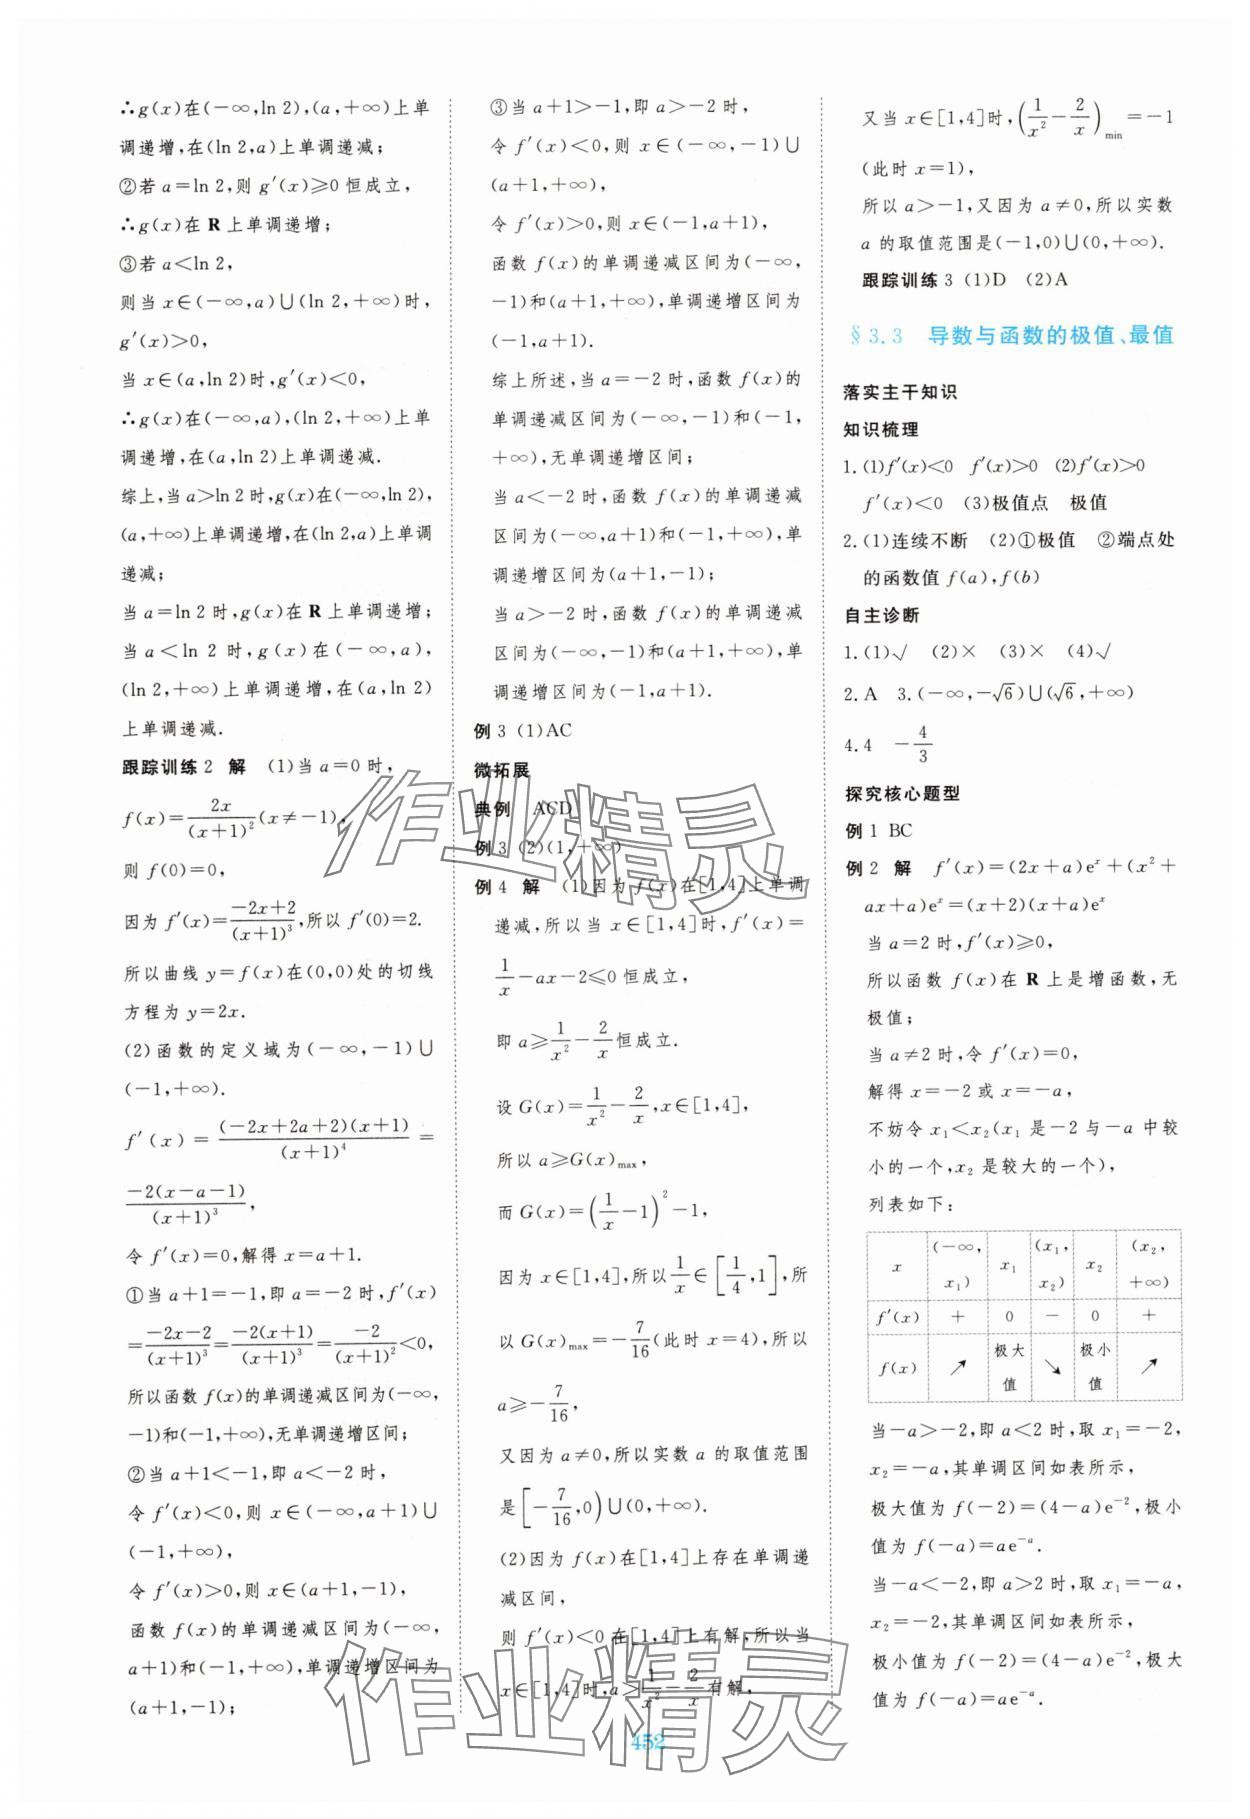 ∴g(x)在(-∞,ln 2),(a,+∞)上单
调递增,在(ln 2,a)上单调递减;
②若 a=ln 2,则 g′(x)≥0 恒成立,
∴g(x)在 R 上单调递增;
③若 a<ln 2,
则当 x∈(-∞,a)∪(ln 2,+∞)时,
g′(x)>0,
当 x∈(a,ln 2)时,g′(x)<0,
∴g(x)在(-∞,a),(ln 2,+∞)上单
调递增,在(a,ln 2)上单调递减.
综上,当 a>ln 2时,g(x)在(-∞,ln 2),
(a,+∞)上单调递增,在(ln 2,a)上单调
递减;
当 a=ln 2 时,g(x)在 R 上单调递增;
当 a<ln 2 时,g(x)在(-∞,a),
(ln 2,+∞)上单调递增,在(a,ln 2)
上单调递减.
跟踪训练 2 解 (1)当 a=0 时,
f(x)=2x/(x+1)²(x≠-1),
则 f(0)=0,
因为 f′(x)=(-2x+2)/(x+1)³,所以 f′(0)=2.
所以曲线 y=f(x)在(0,0)处的切线
方程为 y=2x.
(2)函数的定义域为(-∞,-1)∪
(-1,+∞).
f′(x)=(-2x+2a+2)(x+1)/(x+1)⁴=
-2(x-a-1)/(x+1)³,
令 f′(x)=0,解得 x=a+1.
①当 a+1=-1,即 a=-2 时,f′(x)
=(-2x-2)/(x+1)³=-2(x+1)/(x+1)³=-2/(x+1)²<0,
所以函数 f(x)的单调递减区间为(-∞,
-1)和(-1,+∞),无单调递增区间;
②当 a+1<-1,即 a<-2 时,
令 f′(x)<0,则 x∈(-∞,a+1)∪
(-1,+∞),
令 f′(x)>0,则 x∈(a+1,-1),
函数 f(x)的单调递减区间为(-∞,
a+1)和(-1,+∞),单调递增区间为
(a+1,-1);
③当 a+1>-1,即 a>-2 时,
令 f′(x)<0,则 x∈(-∞,-1)∪
(a+1,+∞),
令 f′(x)>0,则 x∈(-1,a+1),
函数 f(x)的单调递减区间为(-∞,
-1)和(a+1,+∞),单调递增区间为
(-1,a+1).
综上所述,当 a=-2 时,函数 f(x)的
单调递减区间为(-∞,-1)和(-1,
+∞),无单调递增区间;
当 a<-2 时,函数 f(x)的单调递减
区间为(-∞,a+1)和(-1,+∞),单
调递增区间为(a+1,-1);
当 a>-2 时,函数 f(x)的单调递减
区间为(-∞,-1)和(a+1,+∞),单
调递增区间为(-1,a+1).
例 3 (1)AC
微拓展
典例 ACD
例 3 (2)(1,+∞)
例 4 解 (1)因为 f(x)在[1,4]上单调
递减,所以当 x∈[1,4]时,f′(x)=
1/x-ax-2≤0 恒成立,
即 a≥1/x²-2/x恒成立.
设 G(x)=1/x²-2/x,x∈[1,4],
所以 a≥G(x)max,
而 G(x)=(1/x-1)²-1,
因为 x∈[1,4],所以1/x∈[1/4,1],所
以 G(x)max=-7/16(此时 x=4),所以
a≥-7/16,
又因为 a≠0,所以实数 a 的取值范围
是[-7/16,0)∪(0,+∞).
(2)因为 f(x)在[1,4]上存在单调递
减区间,
则 f′(x)<0 在[1,4]上有解,所以当
x∈[1,4]时,a>1/x²-2/x有解,
又当 x∈[1,4]时,(1/x²-2/x)min=-1
(此时 x=1),
所以 a>-1,又因为 a≠0,所以实数
a 的取值范围是(-1,0)∪(0,+∞).
跟踪训练 3 (1)D (2)A
§3.3 导数与函数的极值、最值
落实主干知识
知识梳理
1.(1)f′(x)<0 f′(x)>0 (2)f′(x)>0
f′(x)<0 (3)极值点 极值
2.(1)连续不断 (2)①极值 ②端点处
的函数值 f(a),f(b)
自主诊断
1.(1)√ (2)× (3)× (4)√
2.A 3.(-∞,-√6)∪(√6,+∞)
4.4 -4/3
探究核心题型
例 1 BC
例 2 解 f′(x)=(2x+a)eˣ+(x²+
ax+a)eˣ=(x+2)(x+a)eˣ
当 a=2 时,f′(x)≥0,
所以函数 f(x)在 R 上是增函数,无
极值;
当 a≠2 时,令 f′(x)=0,
解得 x=-2 或 x=-a,
不妨令 x₁<x₂(x₁ 是-2 与-a 中较
小的一个,x₂ 是较大的一个),
列表如下:
x (-∞,x₁) x₁ (x₁,x₂) x₂ (x₂,+∞)
f′(x) + 0 - 0 +
f(x) ↗ 极大值 ↘ 极小值 ↗
当-a>-2,即 a<2 时,取 x₁=-2,
x₂=-a,其单调区间如表所示,
极大值为 f(-2)=(4-a)e⁻²,极小
值为 f(-a)=ae⁻ᵃ.
当-a<-2,即 a>2 时,取 x₁=-a,
x₂=-2,其单调区间如表所示,
极小值为 f(-2)=(4-a)e⁻²,极大
值为 f(-a)=ae⁻ᵃ.
452
作业精灵
作业精灵